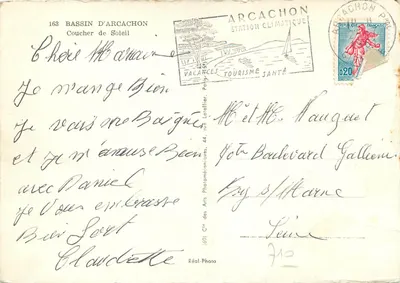 163 BASSIN D'ARCACHON
Coucher de Soleil
Chère Maman
Je mange Bien
Je vais me Baigner
et je m'amuse Bien
avec Daniel
Je vous embrasse
Bien fort
Claudette
ARCACHON
STATION CLIMATIQUE
VACANCES TOURISME SANTÉ
ARCACHON
0,20
M et Mme
Boulevard Gallieni
s/Marne
Seine
710
Réal-Photo